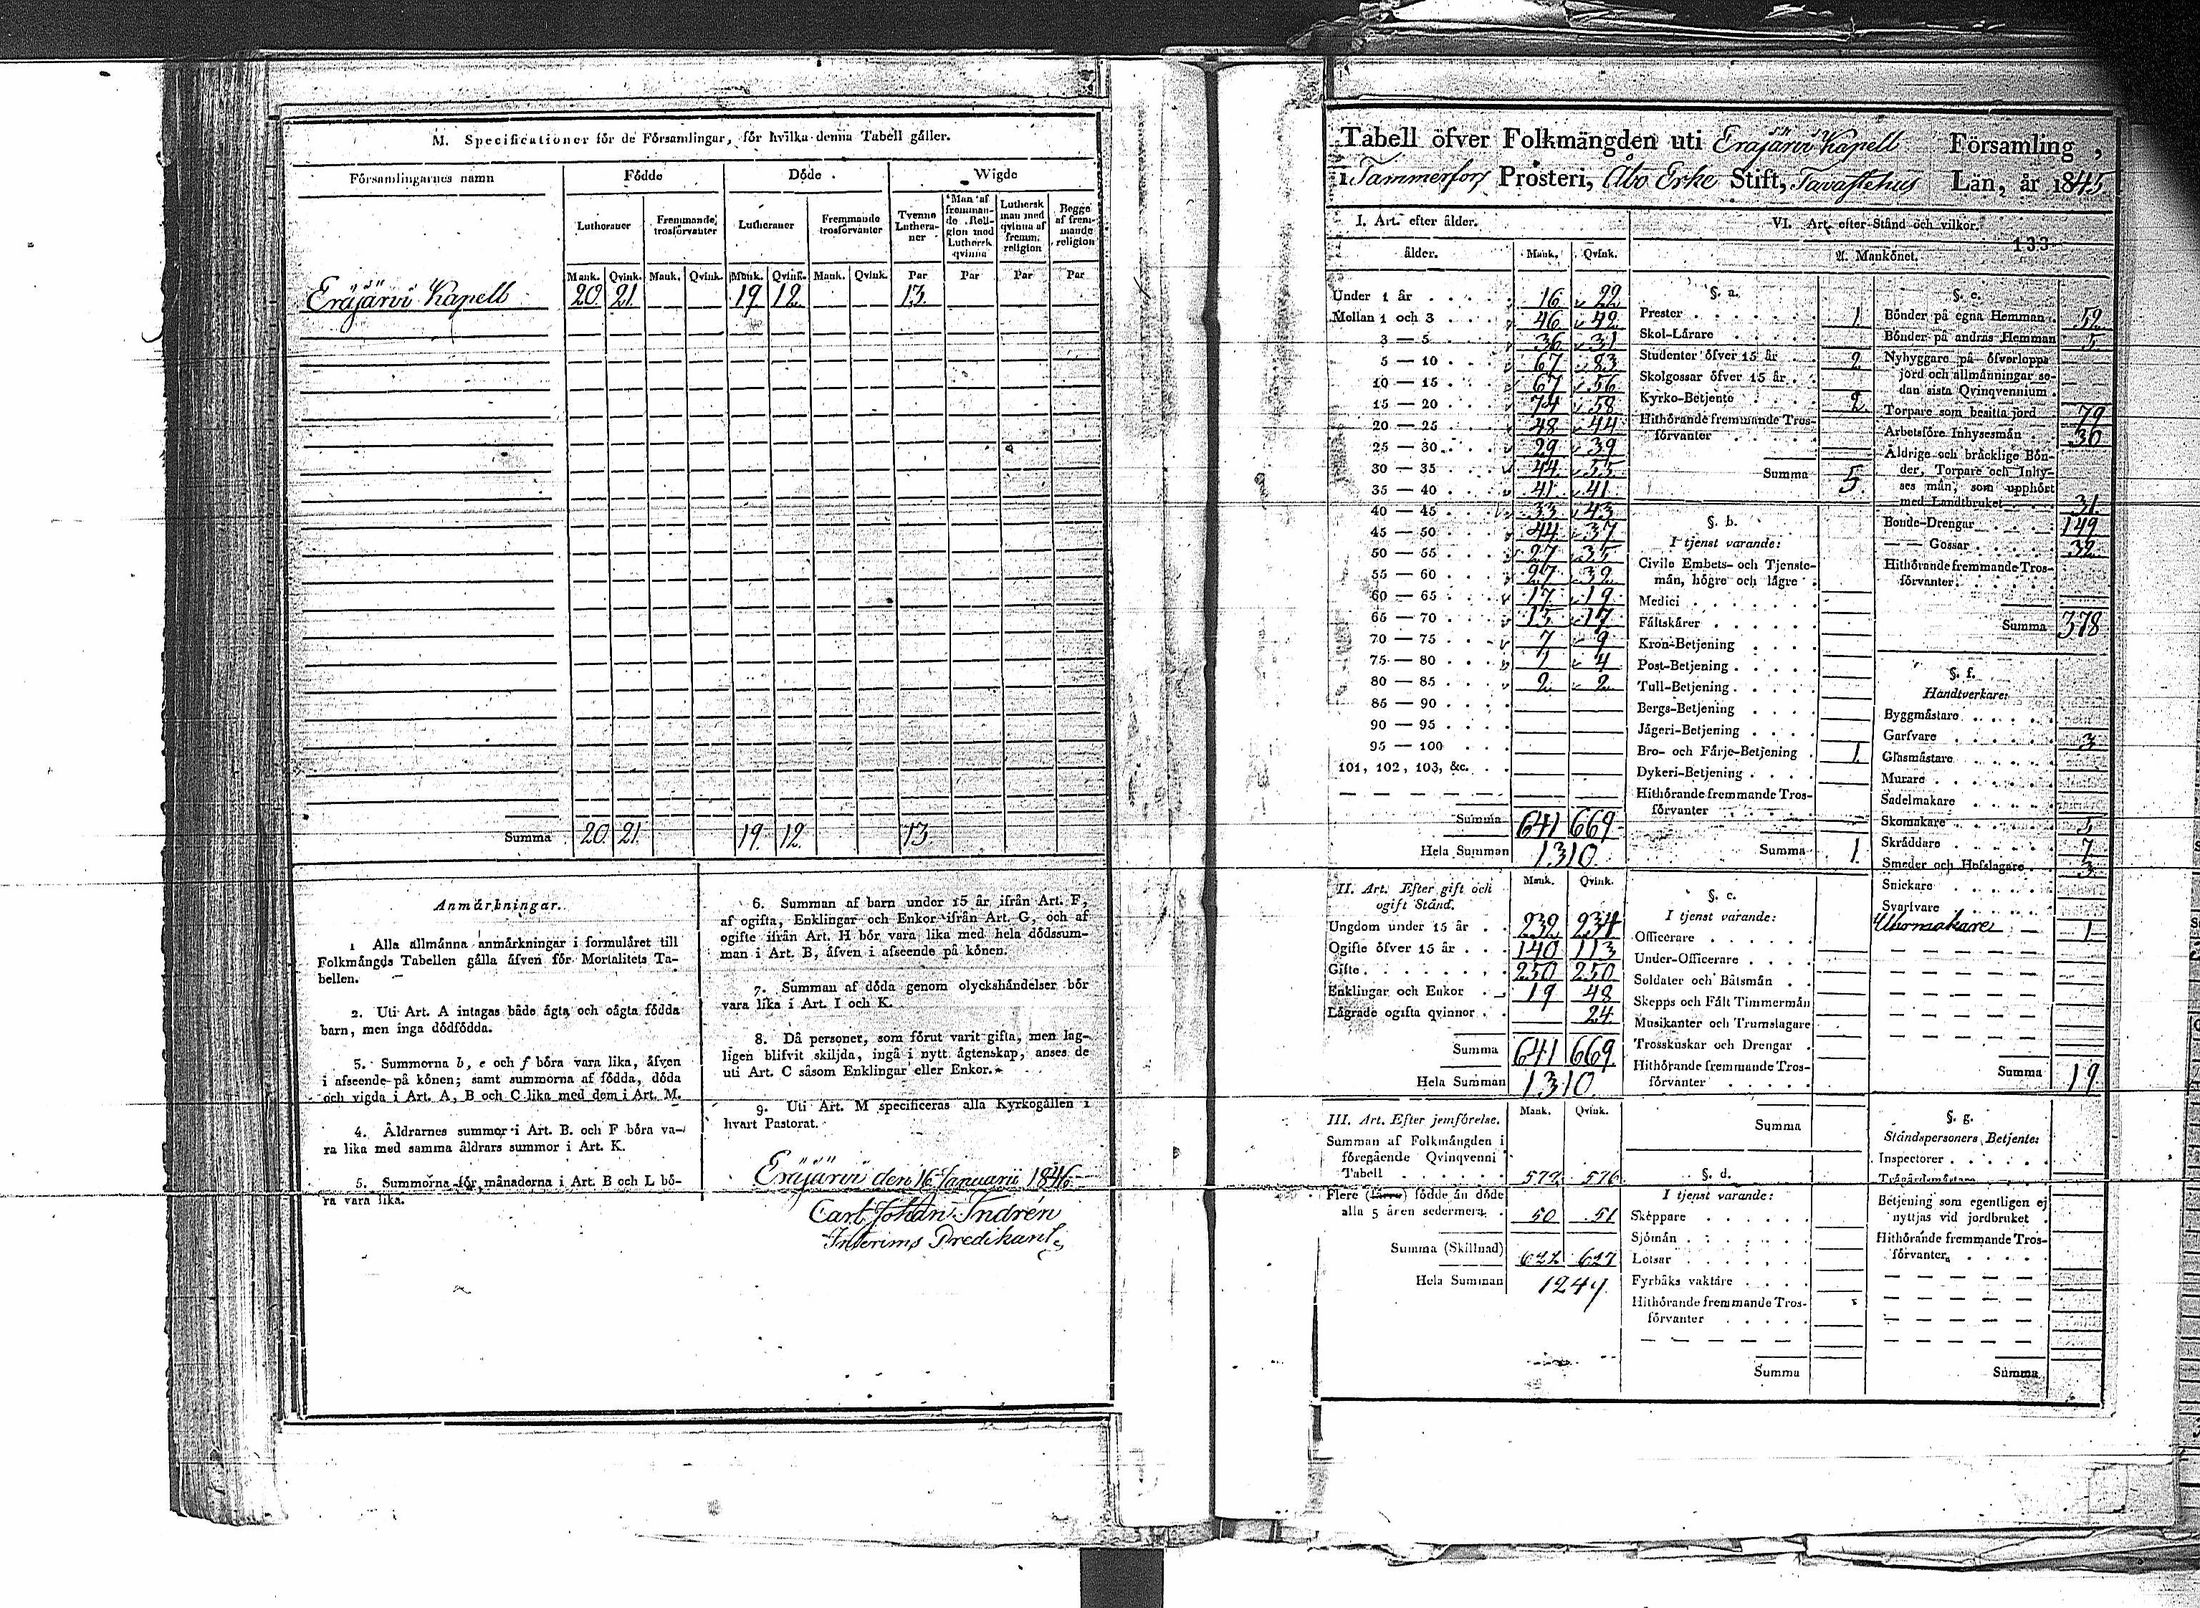 M. Specificationer för de Församlingar, för hvilka denna Tabell gäller.
Församlingarnes namn | Födde | Döde. | Wigde
Lutheraner | Fremmande trosförvanter | Lutheraner | Fremmande trosförvanter | Tvenne Lutheraner | Man af fremmande Religion med Luthersk qvinna | Luthersk man med qvinna af fremm. religion | Begge af fremmande religion
Mank. | Qvink. | Mank. | Qvink. | Mank. | Qvink. | Mank. | Qvink. | Par | Par | Par | Par
Eräjärvi Kapell | 20. | 21. | 19 | 12. | 13.
Summa | 20. | 21. | 19. | 12. | 13.
Anmärkningar.
1 Alla allmänna anmärkningar i formuläret till
Folkmängds Tabellen gälla äfven för Mortalitets Ta-
bellen.
2. Uti Art. A intagas både ägta och oägta födda
barn, men inga dödfödda.
3. Summorna b, e och f böra vara lika, äfven
i afseende på könen; samt summorna af födda, döda
och vigda i Art. A, B och C lika med dem i Art. M.
4. Åldrarnes summor i Art. B. och F böra va-
ra lika med samma åldrars summor i Art. K.
5. Summorna för månaderna i Art. B och L bö-
ra vara lika.
6. Summan af barn under 15 år ifrån Art. F,
af ogifta, Enklingar och Enkor ifrån Art. G, och af
ogifte ifrån Art. H bör vara lika med hela dödssum-
man i Art. B, äfven i afseende på könen.
7. Summan af döda genom olyckshändelser bör
vara lika i Art. I och K.
8. Då personer, som förut varit gifta, men lag-
ligen blifvit skiljda, ingå i nytt ägtenskap, anses de
uti Art. C såsom Enklingar eller Enkor.
9. Uti Art. M specificeras alla Kyrkogällen i
hvart Pastorat.
Eräjärvi den 16 Januarii 1846
Carl Johan Indrén
Interims Predikant
Tabell öfver Folkmängden uti Eräjärvi Kapell Församling,
i Tammerfors Prosteri, Åbo Erke Stift, Tavastehus Län, år 1845
133
I. Art. efter ålder.
ålder. | Mank. | Qvink.
Under 1 år | 16 | 22
Mellan 1 och 3 | 46 | 42
3 — 5 | 36 | 31
5 — 10 | 67 | 83
10 — 15 | 67 | 56
15 — 20 | 74 | 58
20 — 25 | 48 | 44
25 — 30 | 29 | 39
30 — 35 | 44 | 55
35 — 40 | 41 | 41
40 — 45 | 33 | 43
45 — 50 | 44 | 37
50 — 55 | 27 | 35
55 — 60 | 27 | 32
60 — 65 | 17 | 19
65 — 70 | 15 | 17
70 — 75 | 7 | 9
75 — 80 | 1 | 4
80 — 85 | 2 | 2
85 — 90
90 — 95
95 — 100
101, 102, 103, &c.
Summa | 641 | 669
Hela Summan | 1310
II. Art. Efter gift och ogift Stånd. | Mank. | Qvink.
Ungdom under 15 år | 232 | 234
Ogifte öfver 15 år | 140 | 113
Gifte | 250 | 250
Enklingar och Enkor | 19 | 48
Lägrade ogifta qvinnor | 24
Summa | 641 | 669
Hela Summan | 1310
III. Art. Efter jemförelse. | Mank. | Qvink.
Summan af Folkmängden i
föregående Qvinqvenni
Tabell | 572 | 576
Flere (färre) födde än döde
alla 5 åren sedermera | 50 | 51
Summa (Skillnad) | 622 | 627
Hela Summan | 1249
VI. Art. efter Stånd och vilkor.
A. Mankönet.
§. a.
Prester | 1
Skol-Lärare
Studenter öfver 15 år | 2
Skolgossar öfver 15 år
Kyrko-Betjente | 2
Hithörande fremmande Tros-
förvanter
Summa | 5.
§. b.
I tjenst varande:
Civile Embets- och Tjenste-
män, högre och lägre
Medici
Fältskärer
Kron-Betjening
Post-Betjening
Tull-Betjening
Bergs-Betjening
Jägeri-Betjening
Bro- och Färje-Betjening | 1.
Dykeri-Betjening
Hithörande fremmande Tros-
förvanter
Summa | 1.
§. c.
I tjenst varande:
Officerare
Under-Officerare
Soldater och Båtsmän
Skepps och Fält Timmermän
Musikanter och Trumslagare
Trosskuskar och Drengar
Hithörande fremmande Tros-
förvanter
Summa
§. d.
I tjenst varande:
Skeppare
Sjömän
Lotsar
Fyrbåks vaktare
Hithörande fremmande Tros-
förvanter
Summa
§. e.
Bönder på egna Hemman | 52
Bönder på andras Hemman | 5
Nybyggare på öfverlopps
jord och allmänningar se-
dan sista Qvinqvennium
Torpare som besitta jord | 79
Arbetsföre Inhysesmän | 30
Åldrige och bräcklige Bön-
der, Torpare och Inhy-
ses män, som upphört
med Landtbruket | 31
Bonde-Drengar | 149
— — Gossar | 32
Hithörande fremmande Tros-
förvanter
Summa | 378
§. f.
Handtverkare:
Byggmästare
Garfvare | 3
Glasmästare
Murare
Sadelmakare
Skomakare | 5
Skräddare | 7
Smeder och Hofslagare | 3
Snickare
Svarfvare
Urmakare | 1
Summa | 19
§. g.
Ståndspersoners Betjente:
Inspectorer
Trägårdsmästare
Betjening som egentligen ej
nyttjas vid jordbruket
Hithörande fremmande Tros-
förvanter
Summa